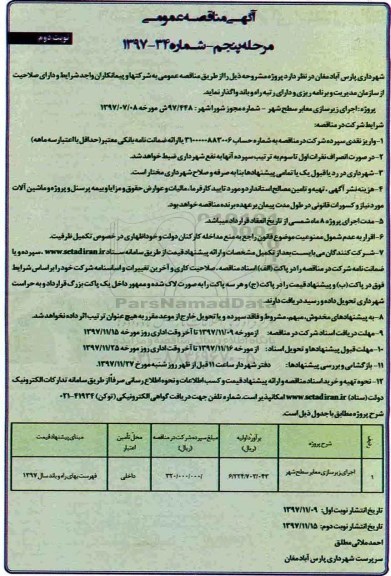 آگهی مناقصه عمومی
نوبت دوم
مرحله پنجم - شماره ۳۴-۱۳۹۷
شهرداری پارس آباد مغان در نظر دارد پروژه مشروحه ذیل را از طریق مناقصه عمومی به شرکتها و پیمانکاران واجد شرایط و دارای صلاحیت
از سازمان مدیریت و برنامه ریزی و دارای رتبه راه و باند واگذار نماید.
پروژه: اجرای زیرسازی معابر سطح شهر - شماره مجوز شورا شهر: ۹۷/۴۴۸ ش مورخه ۱۳۹۷/۰۷/۰۸
شرایط شرکت در مناقصه:
۱- واریز نقدی سپرده شرکت در مناقصه به شماره حساب ۳۱۰۰۰۰۰۸۸۳۰۰۶ یا ارائه ضمانت نامه بانکی معتبر (حداقل با اعتبار سه ماهه)
۲- در صورت انصراف نفرات اول تا سوم به ترتیب سپرده آنها به نفع شهرداری ضبط خواهد شد.
۳- شهرداری در رد یا قبول یک یا تمامی پیشنهادها بنا به صرفه و صلاح شهرداری مختار است.
۴- هزینه نشر آگهی، تهیه و تامین مصالح استاندارد و مورد تایید کارفرما، مالیات و عوارض حقوق و مزایا و بیمه پرسنل و پروژه و ماشین آلات
مورد نیاز و کسورات قانونی در طول مدت پیمان بر عهده برنده مناقصه خواهد بود.
۵- مدت اجرای پروژه ۸ ماه شمسی از تاریخ انعقاد قرارداد میباشد.
۶- اقرار به عدم شمول ممنوعیت موضوع قانون راجع به منع مداخله کارکنان دولت و خود اظهاری در خصوص تکمیل ظرفیت.
۷- شرکت کنندگان می بایست بعد از تکمیل مشخصات و ارائه پیشنهاد قیمت از طریق سامانه ستاد www.setadiran.ir ، سپرده و یا
ضمانت نامه شرکت در مناقصه را در پاکت (الف) اسناد مناقصه، صلاحیت کاری و آخرین تغییرات و اساسنامه شرکت خود را بر اساس شرایط
فوق در پاکت (ب) و پیشنهاد قیمت را در پاکت (ج) و هر سه پاکت را به صورت لاک شده و ممهور داخل یک پاکت بزرگ قرار داده و به حراست
شهرداری تحویل داده و رسید دریافت دارند.
۸- به پیشنهادهای مخدوش، مبهم، مشروط و فاقد سپرده و یا تحویل خارج از موعد مقرر به هیچ عنوان ترتیب اثر داده نخواهد شد.
۹- مهلت دریافت اسناد شرکت در مناقصه: از مورخه ۱۳۹۷/۱۱/۰۹ تا آخر وقت اداری روز مورخه ۱۳۹۷/۱۱/۱۵
۱۰- مهلت قبول پیشنهادها و تحویل اسناد: از مورخه ۱۳۹۷/۱۱/۱۶ تا آخر وقت اداری روز مورخه ۱۳۹۷/۱۱/۲۵
۱۱- بازگشایی و بررسی پیشنهادها: دفتر شهردار ساعت ۱۱ قبل از ظهر روز شنبه مورخ ۱۳۹۷/۱۱/۲۷
۱۲- نحوه تهیه و خرید اسناد مناقصه و ارائه پیشنهاد قیمت و کسب اطلاعات و نحوه اطلاع رسانی صرفاً از طریق سامانه تدارکات الکترونیک
دولت (ستاد) www.setadiran.ir امکانپذیر است. شماره تلفن جهت دریافت گواهی الکترونیکی (توکن) ۴۱۹۳۴-۰۲۱
شرح پروژه مطابق با جدول ذیل است.
شرح پروژه برآورد اولیه (ریال) مبلغ سپرده شرکت در مناقصه (ریال) محل تأمین اعتبار مبنای پیشنهاد قیمت
۱ اجرای زیرسازی معابر سطح شهر ۶/۳۲۴/۷۰۳/۰۴۳ ۳۲۰/۰۰۰/۰۰۰/ داخلی فهرست بهای راه و باند سال ۱۳۹۷
تاریخ انتشار نوبت اول: ۱۳۹۷/۱۱/۰۹
تاریخ انتشار نوبت دوم: ۱۳۹۷/۱۱/۱۵
احمد ملائی مطلق
سرپرست شهرداری پارس آباد مغان
ParsNamadData